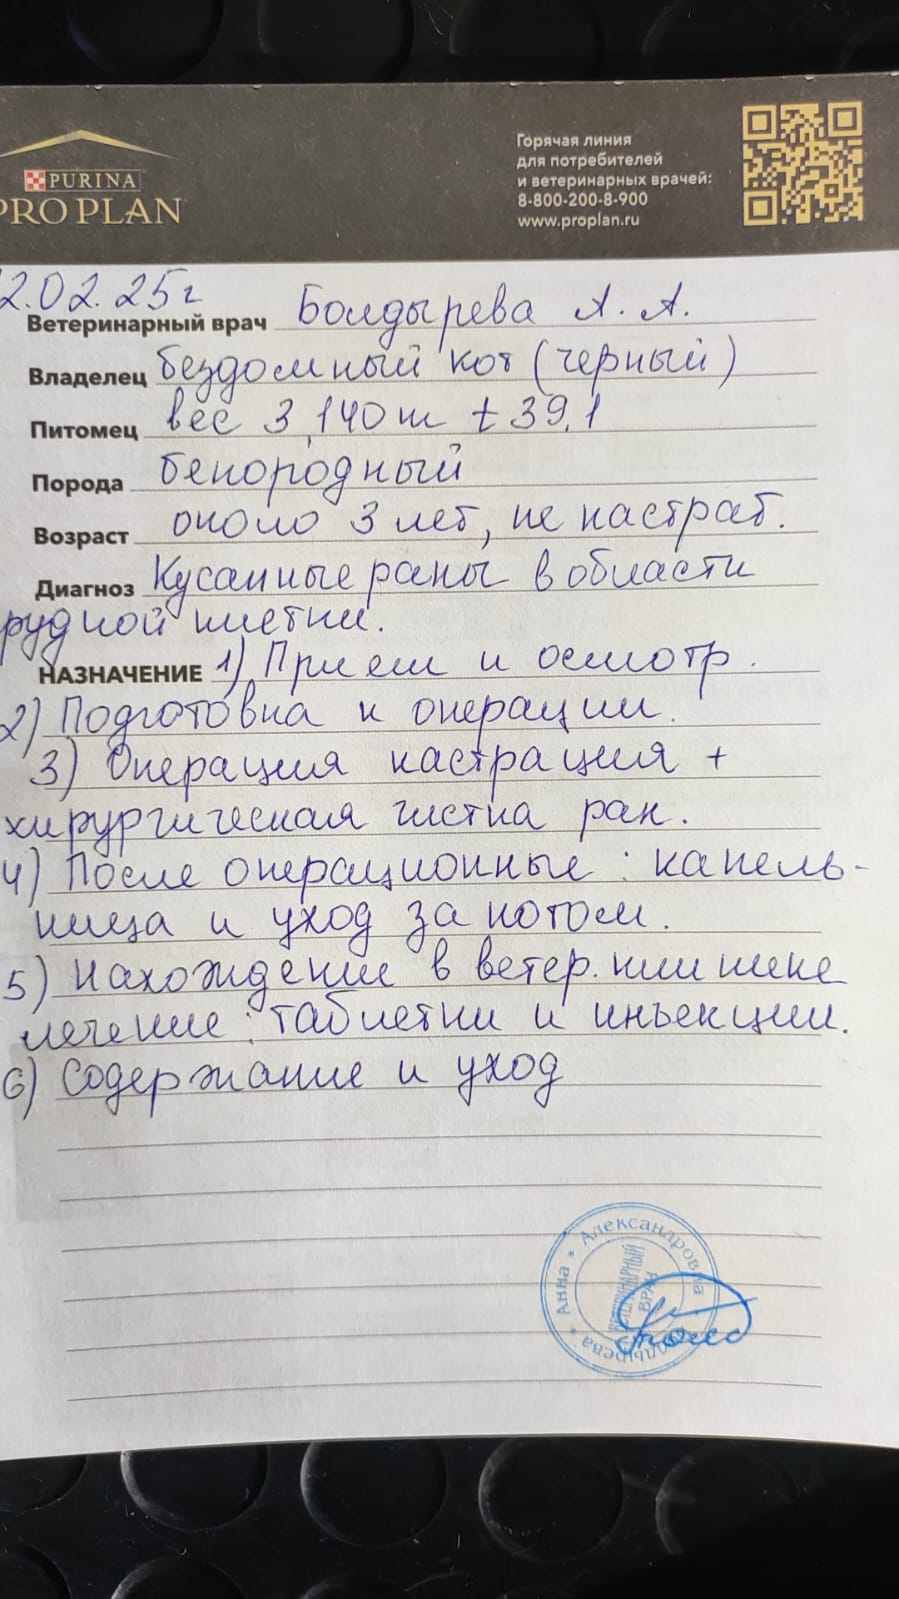 PURINA
PRO PLAN
Горячая линия
для потребителей
и ветеринарных врачей:
8-800-200-8-900
www.proplan.ru
2.02.25г
Ветеринарный врач Болдырева А. А.
Владелец бездомный кот (черный)
Питомец вес 3,140 т t 39,1
Порода беспородный
Возраст около 3 лет, не кастрат.
Диагноз Кусанные раны в области
рудной клетки.
НАЗНАЧЕНИЕ 1) Прием и осмотр.
2) Подготовка к операции.
3) Операция кастрация +
хирургическая чистка ран.
4) После операционные: капель-
ница и уход за котом.
5) Нахождение в ветер. клинике
лечение: таблетки и инъекции.
6) Содержание и уход
Болдырева * Анна * Александровна
ВЕТЕРИНАРНЫЙ
ВРАЧ